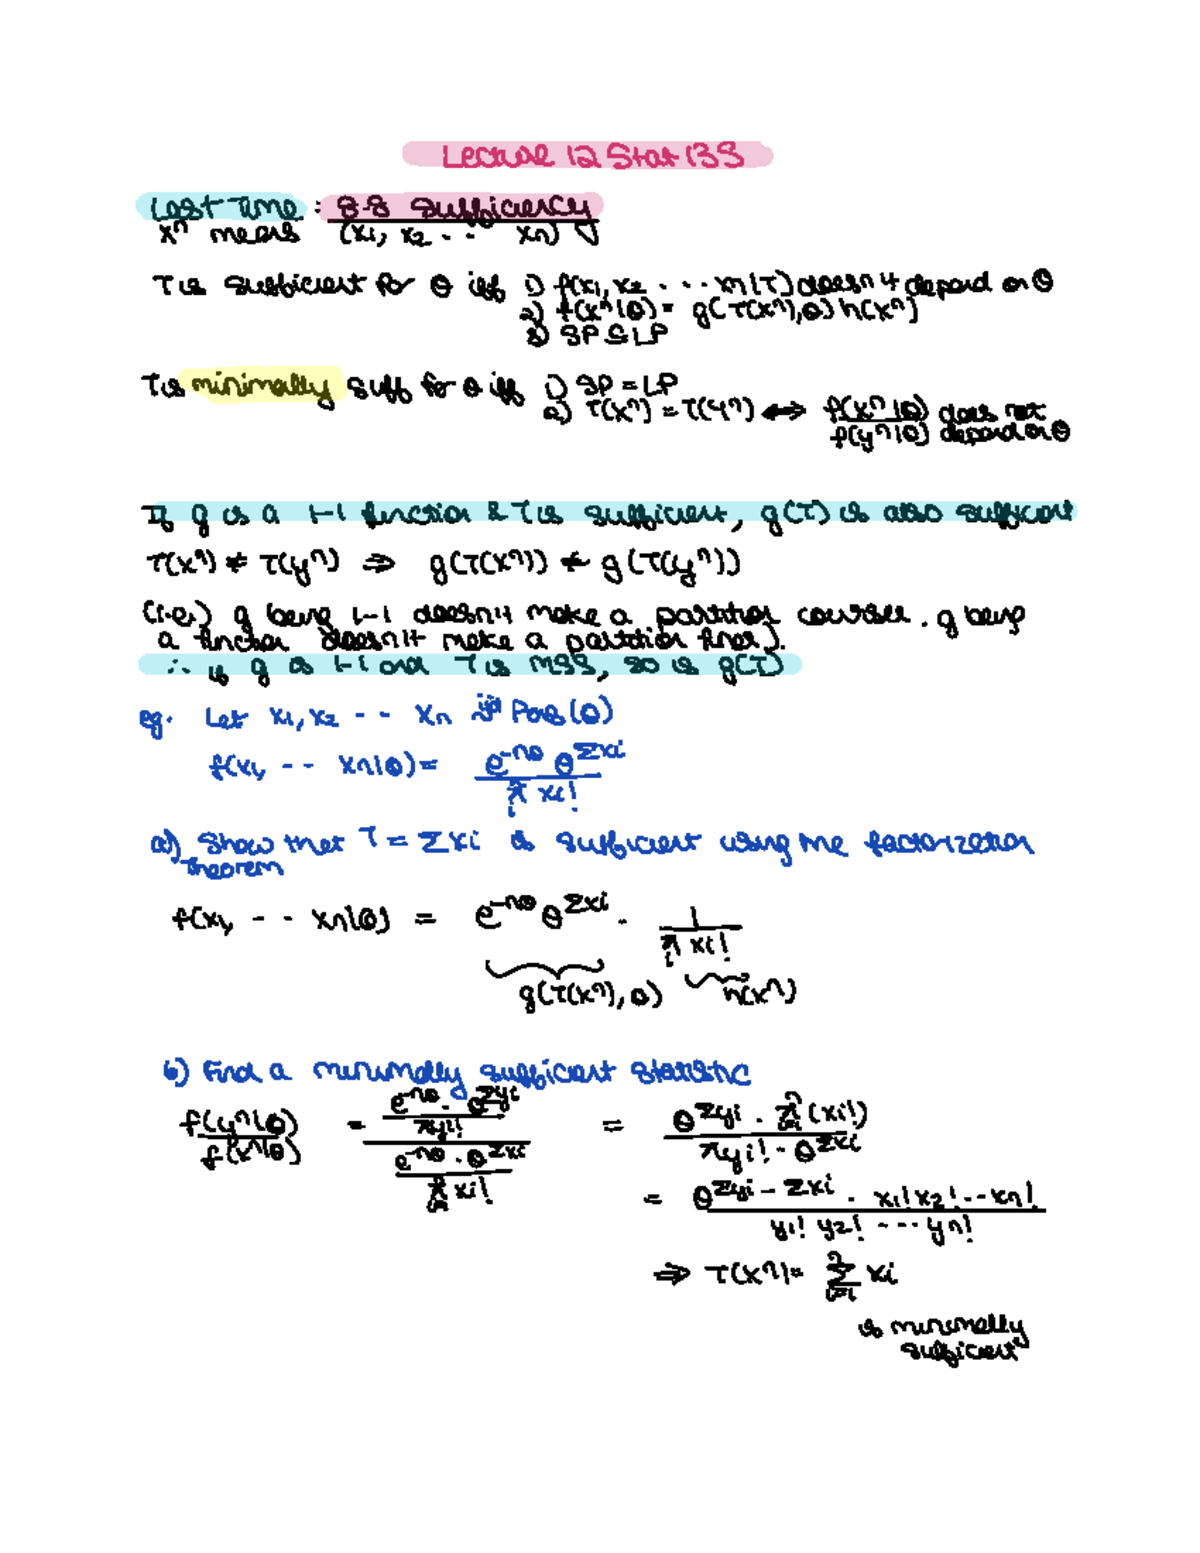 Lecture 12 Stat 135
Last Time : 8.8 Sufficiency
xⁿ means (x₁, x₂ . . xₙ)
T is sufficient for θ iff 1) f(x₁, x₂ . . . xₙ|T) doesn't depend on θ
2) f(xⁿ|θ) = g(T(xⁿ),θ) h(xⁿ)
3) SP ⊆ LP
T is minimally suff for θ iff 1) SP = LP
2) T(xⁿ) = T(yⁿ) ⟺ f(xⁿ|θ) / f(yⁿ|θ) does not depend on θ
If g is a 1-1 function & T is sufficient, g(T) is also sufficient
T(xⁿ) ≠ T(yⁿ) ⇒ g(T(xⁿ)) ≠ g(T(yⁿ))
(i.e.) g being 1-1 doesn't make a partition courser. g being
a function doesn't make a partition finer).
∴ if g is 1-1 and T is MSS, so is g(T)
eg. Let x₁, x₂ - - xₙ iid Pois(θ)
f(x₁, - - xₙ|θ) = e^(-nθ) θ^(Σxi) / π xi!
a) Show that T = Σxi is sufficient using the factorization
theorem
f(x₁, - - xₙ|θ) = e^(-nθ) θ^(Σxi) · 1 / π xi!
g(T(xⁿ), θ) h(xⁿ)
b) Find a minimally sufficient statistic
f(yⁿ|θ) / f(xⁿ|θ) = (e^(-nθ) · θ^(Σyi) / πyi!) / (e^(-nθ) · θ^(Σxi) / π xi!) = θ^(Σyi) · π(xi!) / πyi! · θ^(Σxi)
= θ^(Σyi - Σxi) · x₁! x₂! - - xₙ! / y₁! y₂! - - - yₙ!
⇒ T(xⁿ) = Σ_(i=1)^n xi
is minimally
sufficient